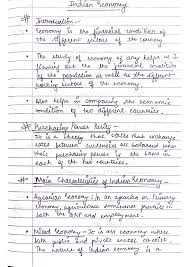 Indian Economy
# Introduction -
• Economy is the financial condition of
the different sectors of the country
• The study of economy of any helps us in
knowing the the financial condition
of the population as well as the different
working sectors of the economy.
• Also helps in comparing the economic
condition of two different countries.
# Purchasing Power Parity -
• It is a theory that states that exchange
rates between currencies are balanced when
their purchasing power is the same in
each of the two countries.
# Main Characteristics of Indian Economy -
• Agrarian Economy:- In an agrarian or primary
economy, agriculture dominance provides in
both the GNP and employment.
• Mixed Economy - It is an economy where
both public and private sector co-exist.
The nature of Indian economy is a